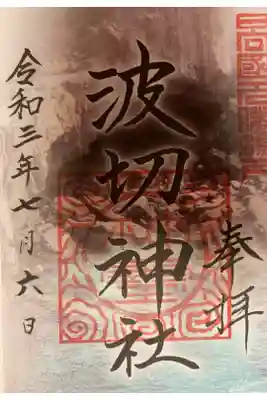 奉拝
波切神社
令和三年七月六日